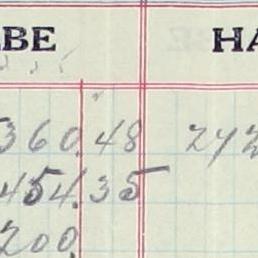 BE HA
360.48 242
454.35
200